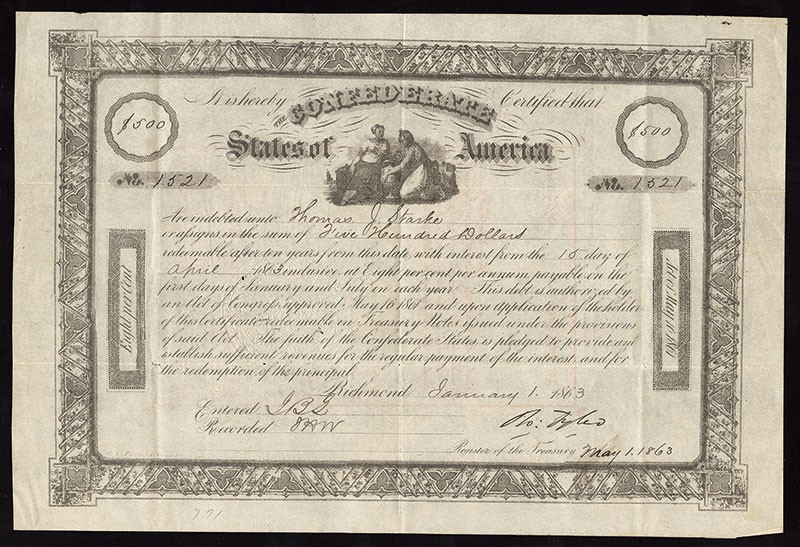 It is hereby THE CONFEDERATE Certified that
$500 States of America $500
No. 1521 No. 1521
Are indebted unto Thomas J. Starke
or assigns in the sum of Five Hundred Dollars
redeemable after ten years from this date with interest from the 15 day of
April 1863 inclusive at Eight per cent per annum payable on the
first days of January and July on each year This debt is authorized by
an Act of Congress approved May 16 1861 and upon application of the holder
of this Certificate redeemable in Treasury Notes issued under the provisions
of said Act The faith of the Confederate States is pledged to provide and
establish sufficient revenues for the regular payment of the interest and for
the redemption of the principal
Eight per cent
Act of May 16 1861
Richmond January 1. 1863
Entered
Recorded
Ro: Tyler
Register of the Treasury May 1. 1863